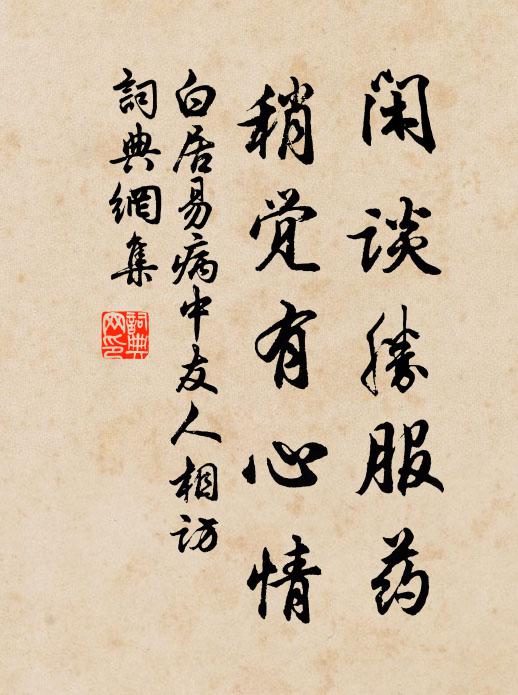 闲谈胜服药
稍觉有心情
白居易病中友人相访
詞典網集
詞典網印